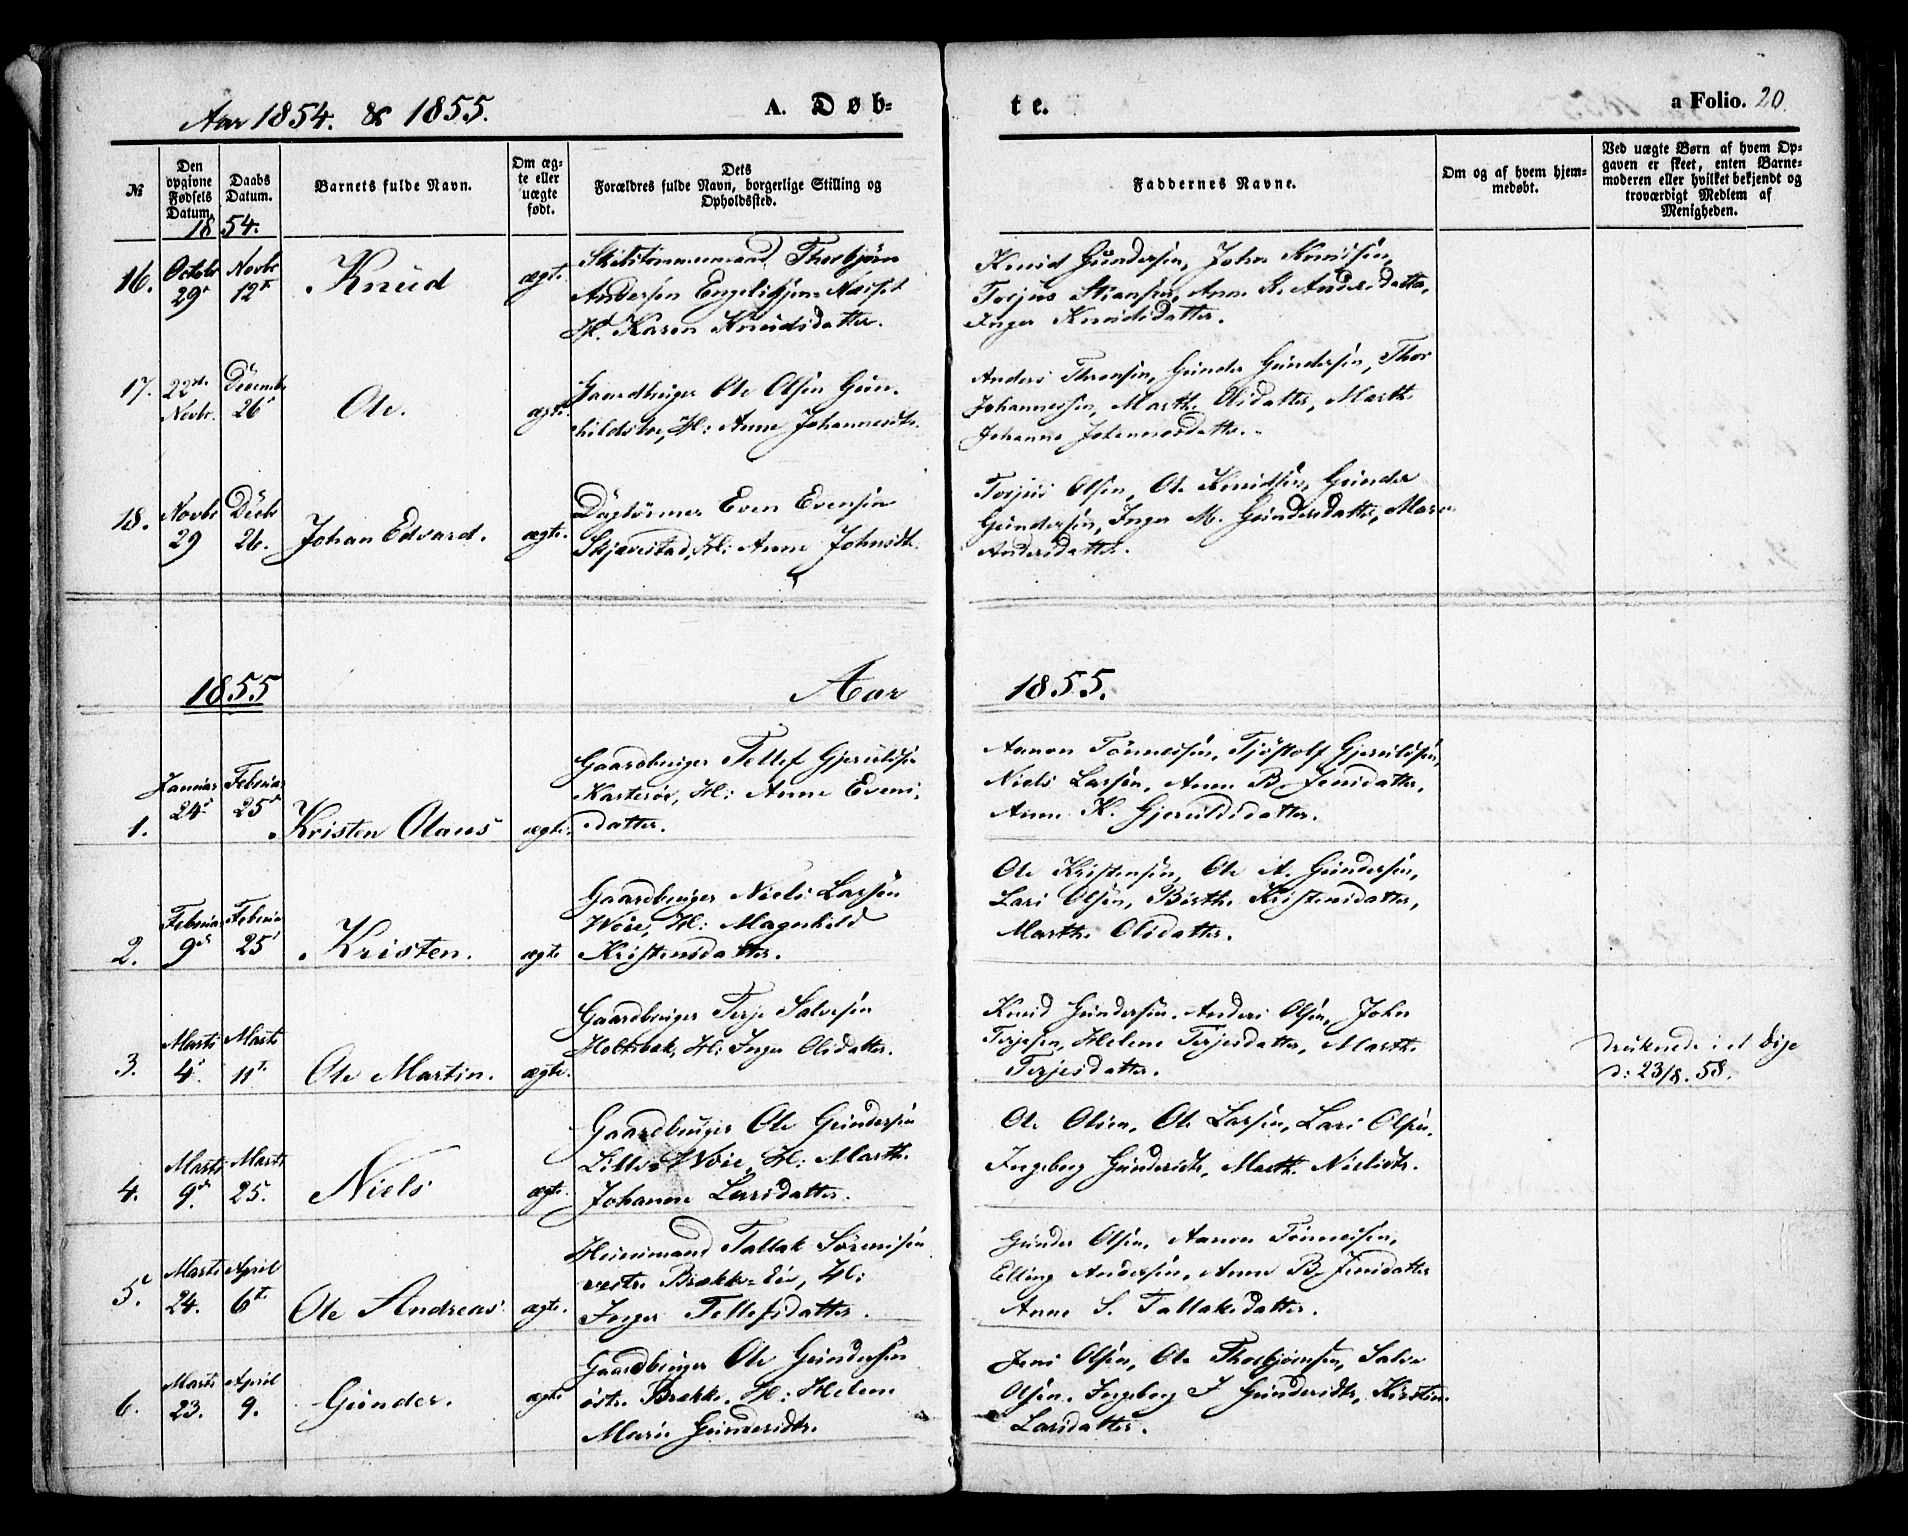 Aar 1854. & 1855.
A. Døb-
te.
a Folio. 20.
№
Den opgivne Fødsels Datum.
Daabs Datum.
Barnets fulde Navn.
Om ægte eller uægte født.
Dets Forældres fulde Navn, borgerlige Stilling og Opholdsted.
Faddernes Navne.
Om og af hvem hjemmedøbt.
Ved uægte Børn af hvem Opgaven er skeet, enten Barnemoderen eller hvilket bekjendt og troværdigt Medlem af Menigheden.
1854.
16.
Octobr 29
Novbr 12t
Knud
ægte
Thorbjørn
Andersen
H. Karen Knudsdatter.
Knud Gundersen, John Knudsen,
Torjus Anne Andersdatter,
Inger Knudsdatter.
17.
22de Novbr.
Decembr 26
Ole.
ægte
Gaardbruger Ole Olsen Gun-
hildsboe, H: Anne Johannesdtr.
Anders Gunder Gundersen, Thor
Johannessen, Marthe Olsdatter, Marthe
Johanne Johannesdatter.
18.
Novbr 29
Decbr 26.
Johan Edvard.
ægte.
Even Evensen
Skjævestad, H: Anne Johnsdtr.
Torjus Olsen, Ole Knudsen, Gunder
Gundersen, Inger M. Gundersdatter, Maren
Andersdatter.
1855
Aar
1855.
1.
Januar 24
Februar 25
Kristen Olaus
ægte.
Gaardbruger Tellef Gjeruldsen
H: Anne Evens-
datter.
Aanon Tønnessen, Tjøstolf Gjeruldsen,
Niels Larsen, Anne B. Jensdatter,
Anne K. Gjeruldsdatter.
2.
Februar 9d
Februar 25
Kristen.
ægte
Gaardbruger Niels Larsen
Woie, H: Magnhild
Kristensdatter.
Ole Kristensen, Ole A. Gundersen,
Lars Olsen, Birthe Kristensdatter,
Marthe Olsdatter.
3.
Marts 4
Marts 11t
Ole Martin.
ægte.
Gaardbruger Terje Salvesen
Holtebek, H: Inger Olsdatter.
Knud Gundersen, Anders Olsen, John
Terjesen, Helene Terjesdatter, Marthe
Terjesdatter.
druknede i et Dige
d: 23/8. 58.
4.
Marts 9d.
Marts 25.
Niels
ægte.
Gaardbruger Ole Gundersen
Lille Woie, H: Marthe
Johanne Larsdatter.
Ole Olsen, Ole Larsen, Lars Olsen,
Ingeborg Gundersdtr, Marthe Nielsdtr.
5.
Marts 24.
April 6t
Ole Andreas
ægte.
Huusmand Tallak Sørensen
vestre Brække-Eie, H:
Inger Tellefsdatter.
Gunder Olsen, Aanon Tønnessen,
Elling Andersen, Anne B. Jensdatter
Anne S. Tallaksdatter.
6.
Marts 23.
April 9.
Gunder.
ægte
Gaardbruger Ole Gundersen
østre Brække, H: Helene
Marie Gundersdtr.
Jens Olsen, Ole Thorbjørnsen, Salve
Olsen, Ingeborg J. Gundersdtr, Kirstine
Larsdatter.